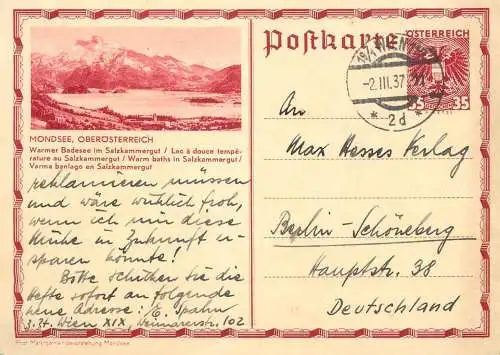 Postkarte
ÖSTERREICH
35 35
19/1 WIEN 117
-2.III.37
* 2d *
MONDSEE, OBERÖSTERREICH
Warmer Badesee im Salzkammergut / Lac à douce tempé-
rature au Salzkammergut / Warm baths in Salzkammergut /
Varma banlago en Salzkammergut
reklamieren müssen
und wäre wirklich froh,
wenn ich mir diese
Mühe in Zukunft er-
sparen könnte!
Bitte schicken sie die
Hefte sofort an folgende
neue Adresse: E. Spahn
z. Zt. Wien XIX, Weimarerstr. 102
An
Max Hesses Verlag
Berlin-Schöneberg
Hauptstr. 38
Deutschland
Phot. Marktgemeindevorstehung Mondsee